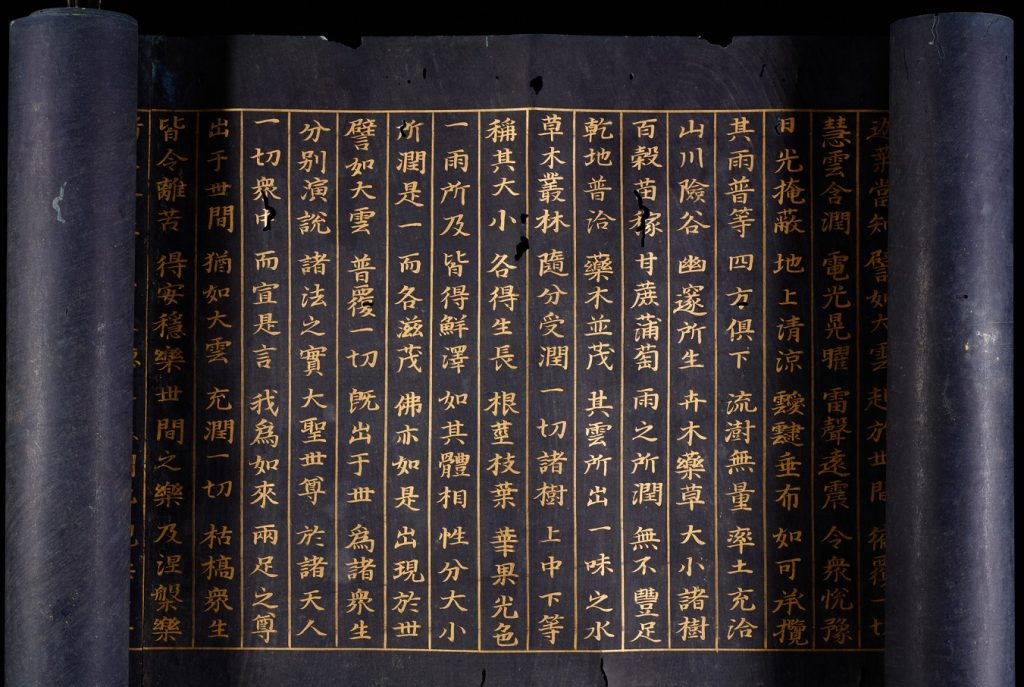 迦葉當知 譬如大雲 起於丗間 徧覆一切
慧雲含潤 電光晃曜 雷聲遠震 令衆悅豫
日光掩蔽 地上清涼 靉靆垂布 如可承攬
其雨普等 四方俱下 流澍無量 率土充洽
山川險谷 幽邃所生 卉木藥草 大小諸樹
百穀苗稼 甘蔗蒲萄 雨之所潤 無不豐足
乾地普洽 藥木並茂 其雲所出 一味之水
草木叢林 隨分受潤 一切諸樹 上中下等
稱其大小 各得生長 根莖枝葉 華果光色
一雨所及 皆得鮮澤 如其體相 性分大小
所潤是一 而各滋茂 佛亦如是 出現於丗
譬如大雲 普覆一切 既出于丗 爲諸衆生
分別演說 諸法之實 大聖丗尊 於諸天人
一切衆中 而宣是言 我爲如來 兩足之尊
出于丗間 猶如大雲 充潤一切 枯槁衆生
皆令離苦 得安穩樂 丗間之樂 及涅槃樂